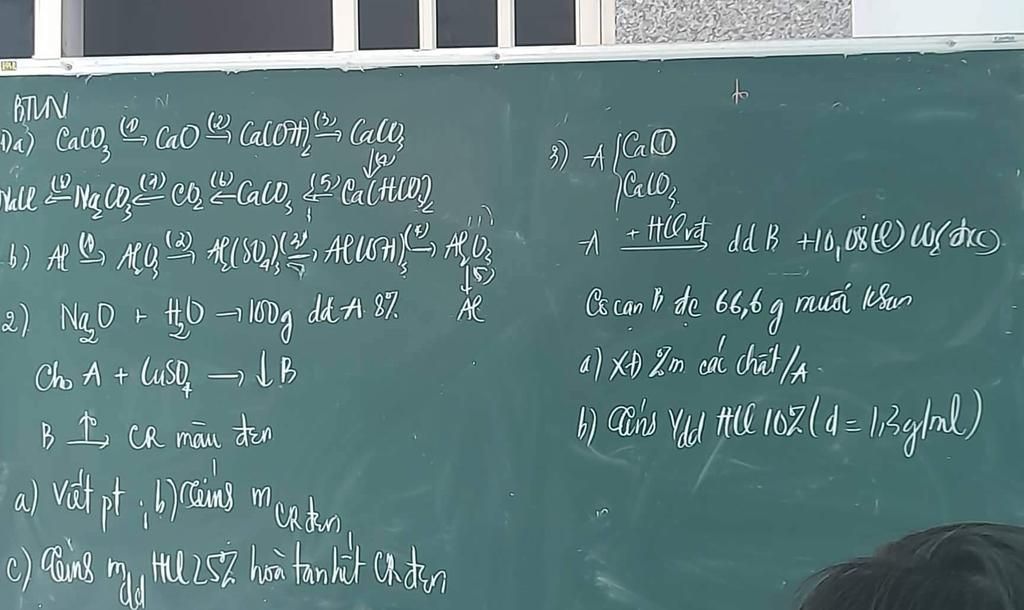 BTVN
1) a) CaCO₃ (1)→ CaO (2)→ Ca(OH)₂ (3)→ CaCO₃
↓(4)
NaCl ←(8) Na₂CO₃ ←(7) CO₂ ←(6) CaCO₃ ←(5) Ca(HCO₃)₂
b) Al (1)→ Al₂O₃ (2)→ Al₂(SO₄)₃ (3)→ Al(OH)₃ (4)→ Al₂O₃
↓(5)
Al
2) Na₂O + H₂O → 100g dd A 8%
Cho A + CuSO₄ → ↓ B
B t°→ CR màu đen
a) Viết pt ; b) Tính m CR đen
c) Tính mdd HCl 25% hoà tan hết CR đen
3) A { CaO
CaCO₃
A + HCl vđ → dd B + 10,08 (l) CO₂ (đkc)
Cô cạn B đc 66,6 g muối khan
a) XĐ %m các chất/A.
b) Tính Vdd HCl 10% (d = 1,3 g/ml)